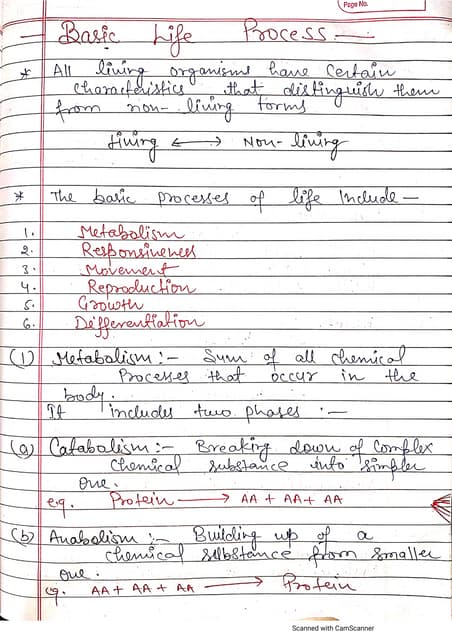 Page No.
Basic Life Process :-
* All living organisms have certain
characteristics that distinguish them
from non-living forms
Living ⟷ Non-living
* The basic processes of life include -
1. Metabolism
2. Responsiveness
3. Movement
4. Reproduction
5. Growth
6. Differentiation
(1) Metabolism :- Sum of all chemical
Processes that occur in the
body.
It includes two phases :-
(a) Catabolism :- Breaking down of complex
chemical substance into simpler
one.
e.g. Protein ⟶ AA + AA + AA
(b) Anabolism :- Building up of a
chemical substance from smaller
one.
eg. AA + AA + AA ⟶ Protein
Scanned with CamScanner